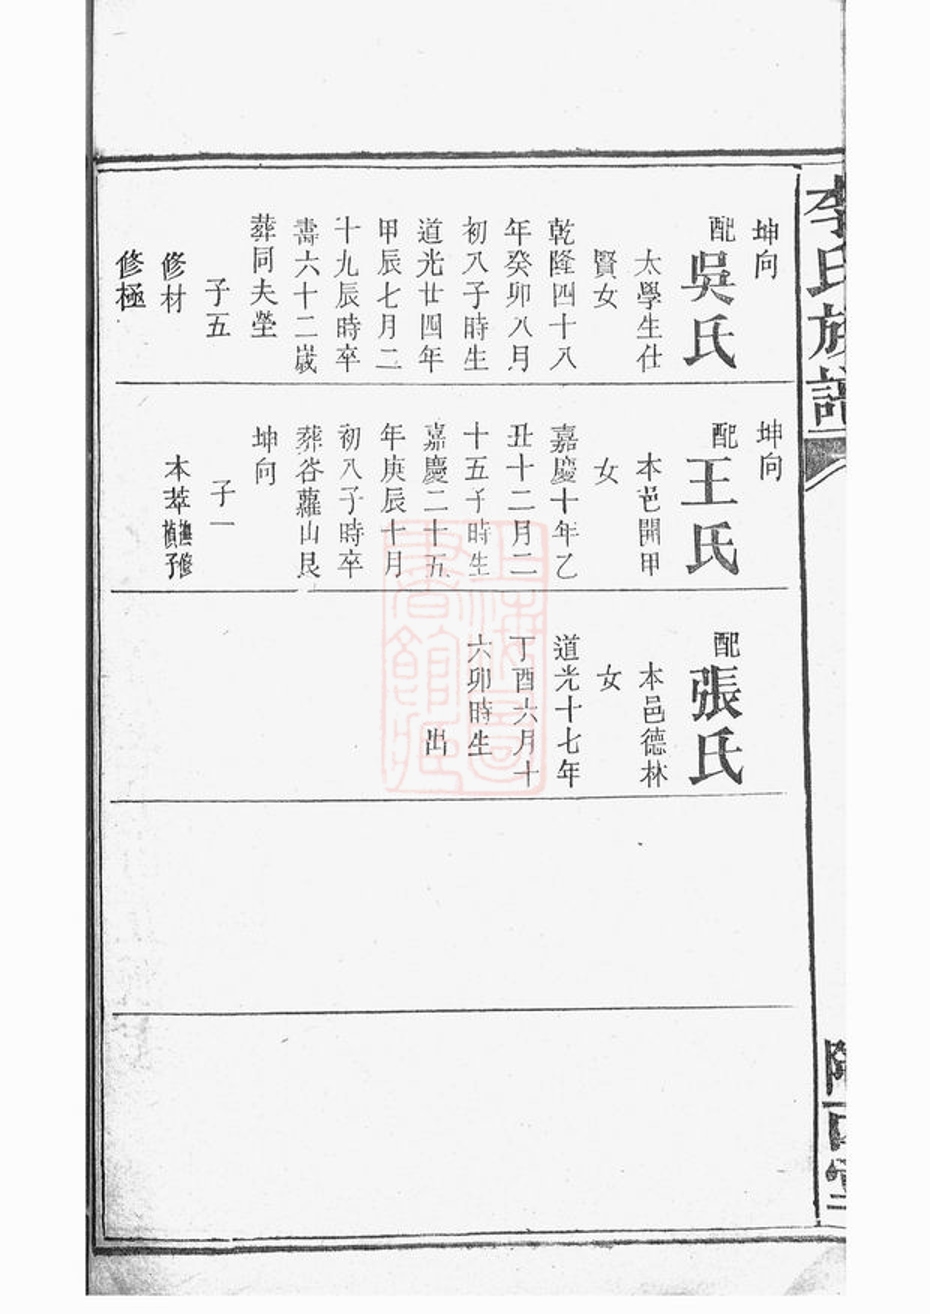 李氏族譜
坤向
配吳氏
太學生仕
賢女
乾隆四十八
年癸卯八月
初八子時生
道光廿四年
甲辰七月二
十九辰時卒
壽六十二歲
葬同夫塋
子五
修材
修極
坤向
配王氏
本邑開甲
女
嘉慶十年乙
丑十二月二
十五子時生
嘉慶二十五
年庚辰十月
初八子時卒
葬谷蘿山艮
坤向
子一
本萃
修
楨子
配張氏
本邑德林
女
道光十七年
丁酉六月十
六卯時生
出
上海圖
書館藏